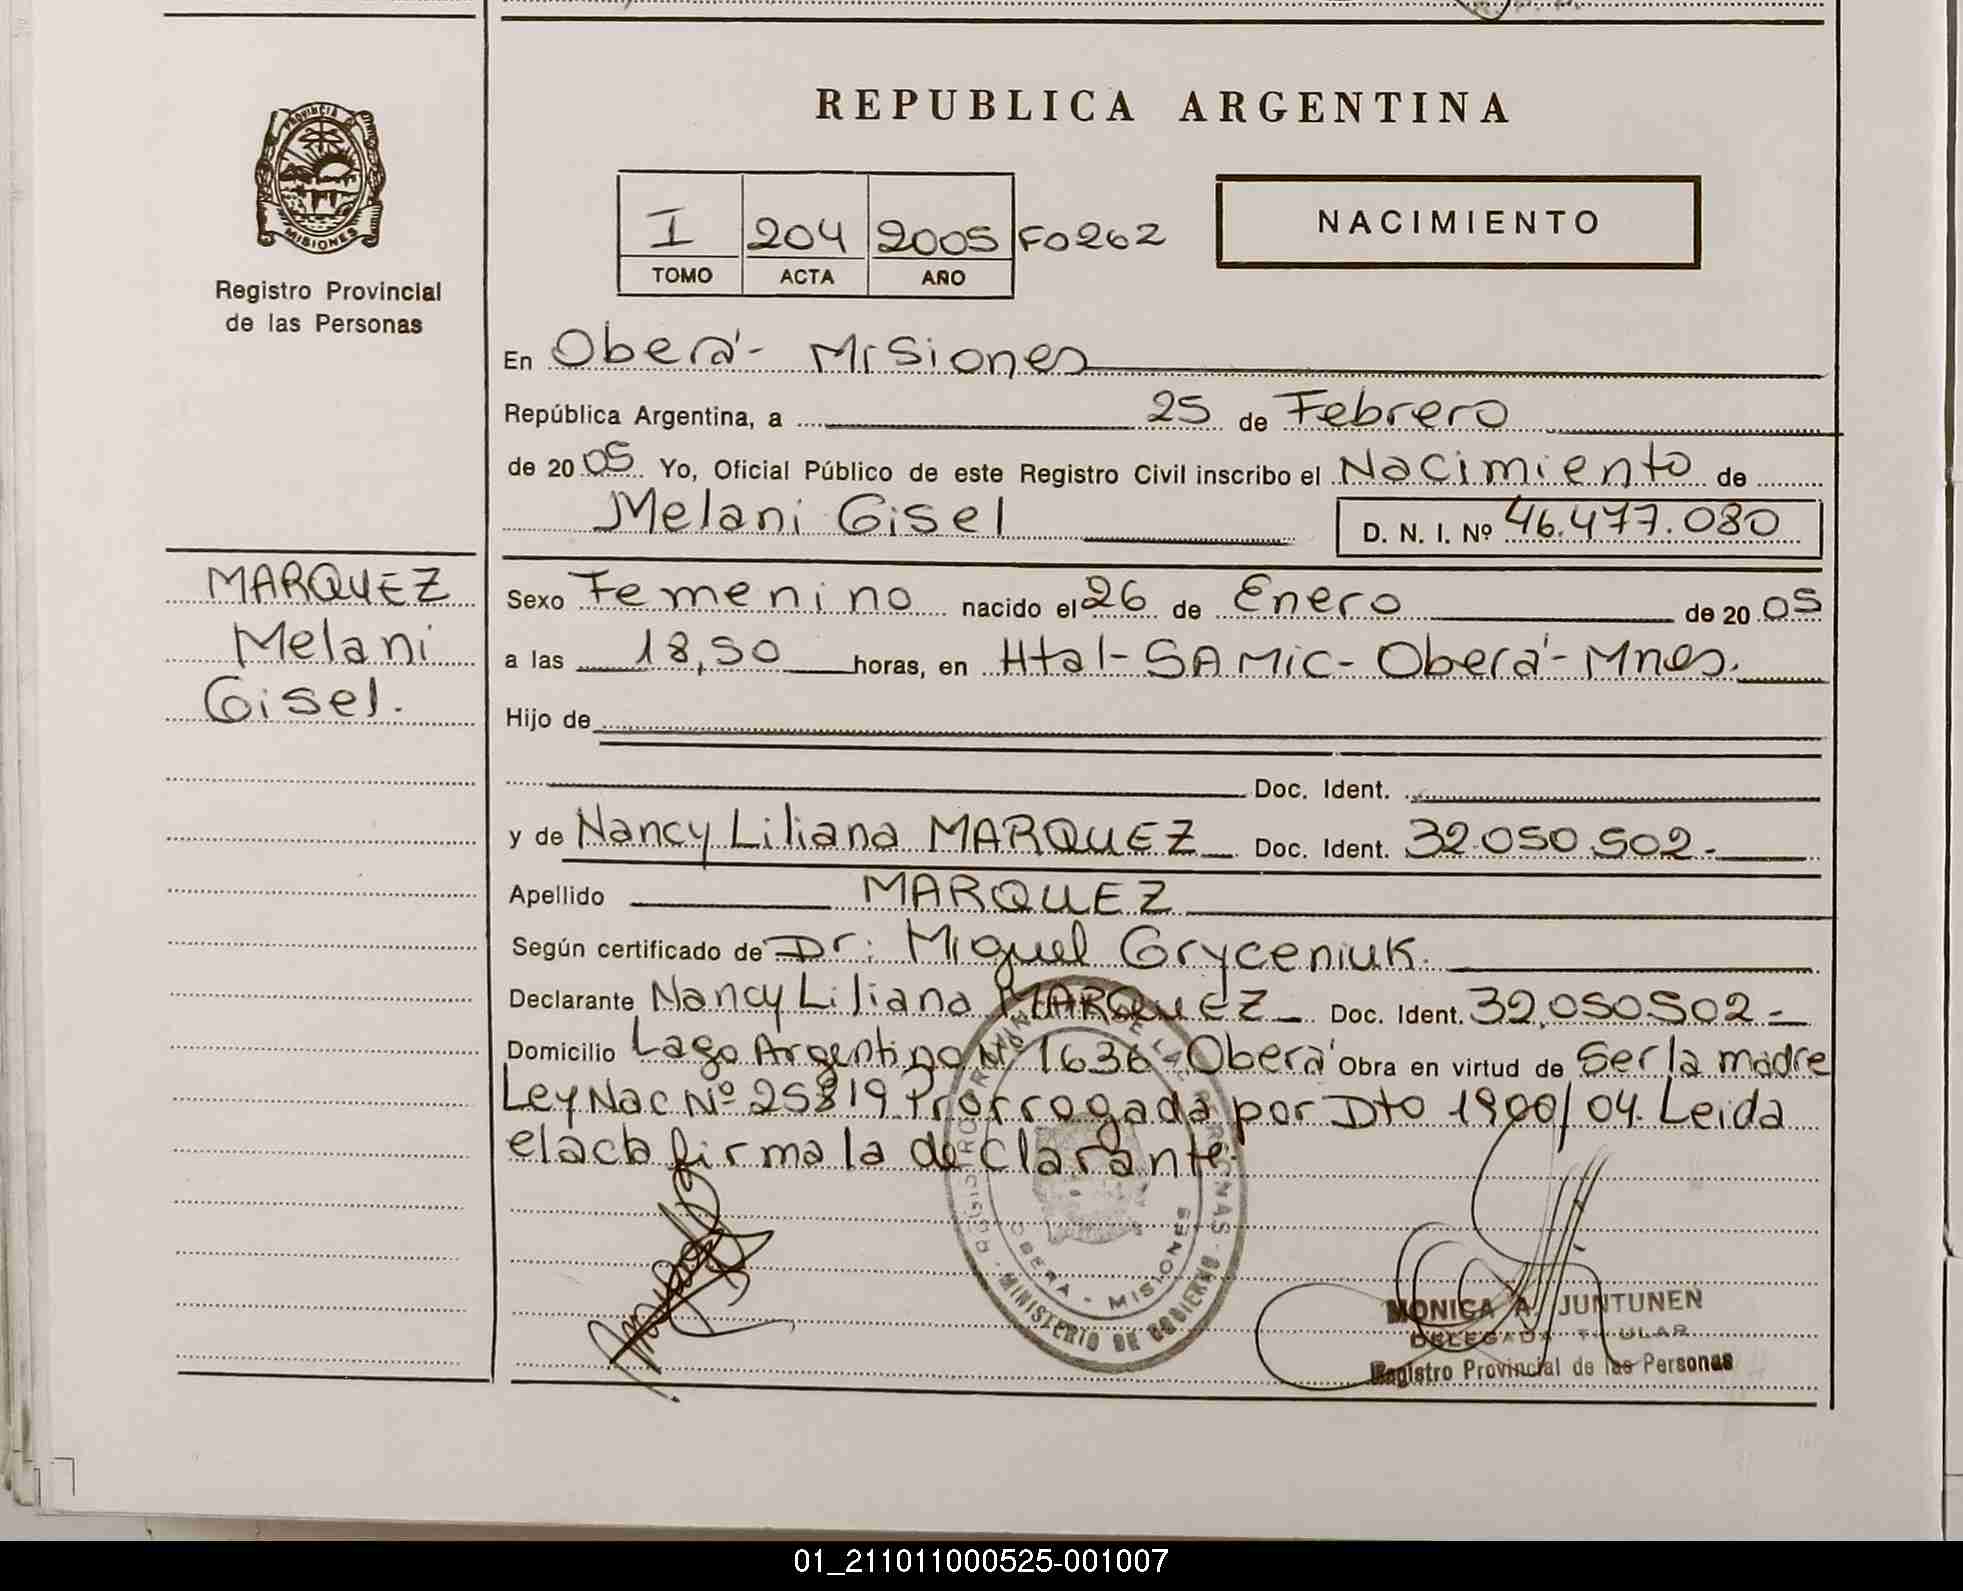 REPUBLICA ARGENTINA
PROVINCIA DE
MISIONES
Registro Provincial
de las Personas
I 204 2005 Fo262
TOMO ACTA AÑO
NACIMIENTO
En Oberá - Misiones
República Argentina, a 25 de Febrero
de 2005 Yo, Oficial Público de este Registro Civil inscribo el Nacimiento de
Melani Gisel D. N. I. Nº 46.477.080
MARQUEZ
Melani
Gisel.
Sexo Femenino nacido el 26 de Enero de 2005
a las 18,50 horas, en Htal-SAMIC-Oberá-Mnes.
Hijo de
Doc. Ident.
y de Nancy Liliana MARQUEZ Doc. Ident. 32.050.502.-
Apellido MARQUEZ
Según certificado de Dr: Miguel Gryceniuk.
Declarante Nancy Liliana MARQUEZ Doc. Ident. 32.050.502-
Domicilio Lago Argentino Nº 1636 Oberá Obra en virtud de Ser la madre
Ley Nac Nº 25819 Prorrogada por Dto 1900/04. Leida
el acta firma la declarante.
OBERA - MISIONES
MINISTERIO DE GOBIERNO
MONICA A. JUNTUNEN
DELEGADA TITULAR
Registro Provincial de las Personas
01_211011000525-001007